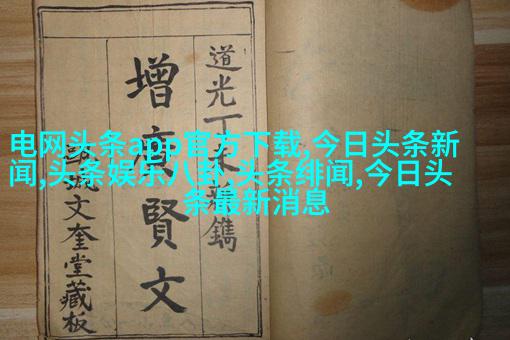 电网头条app官方下载,今日头条新
闻,头条娱乐八卦,头条绯闻,今日头
条最新消息
道光丁未新鐫
增廣賢文
文奎堂藏板